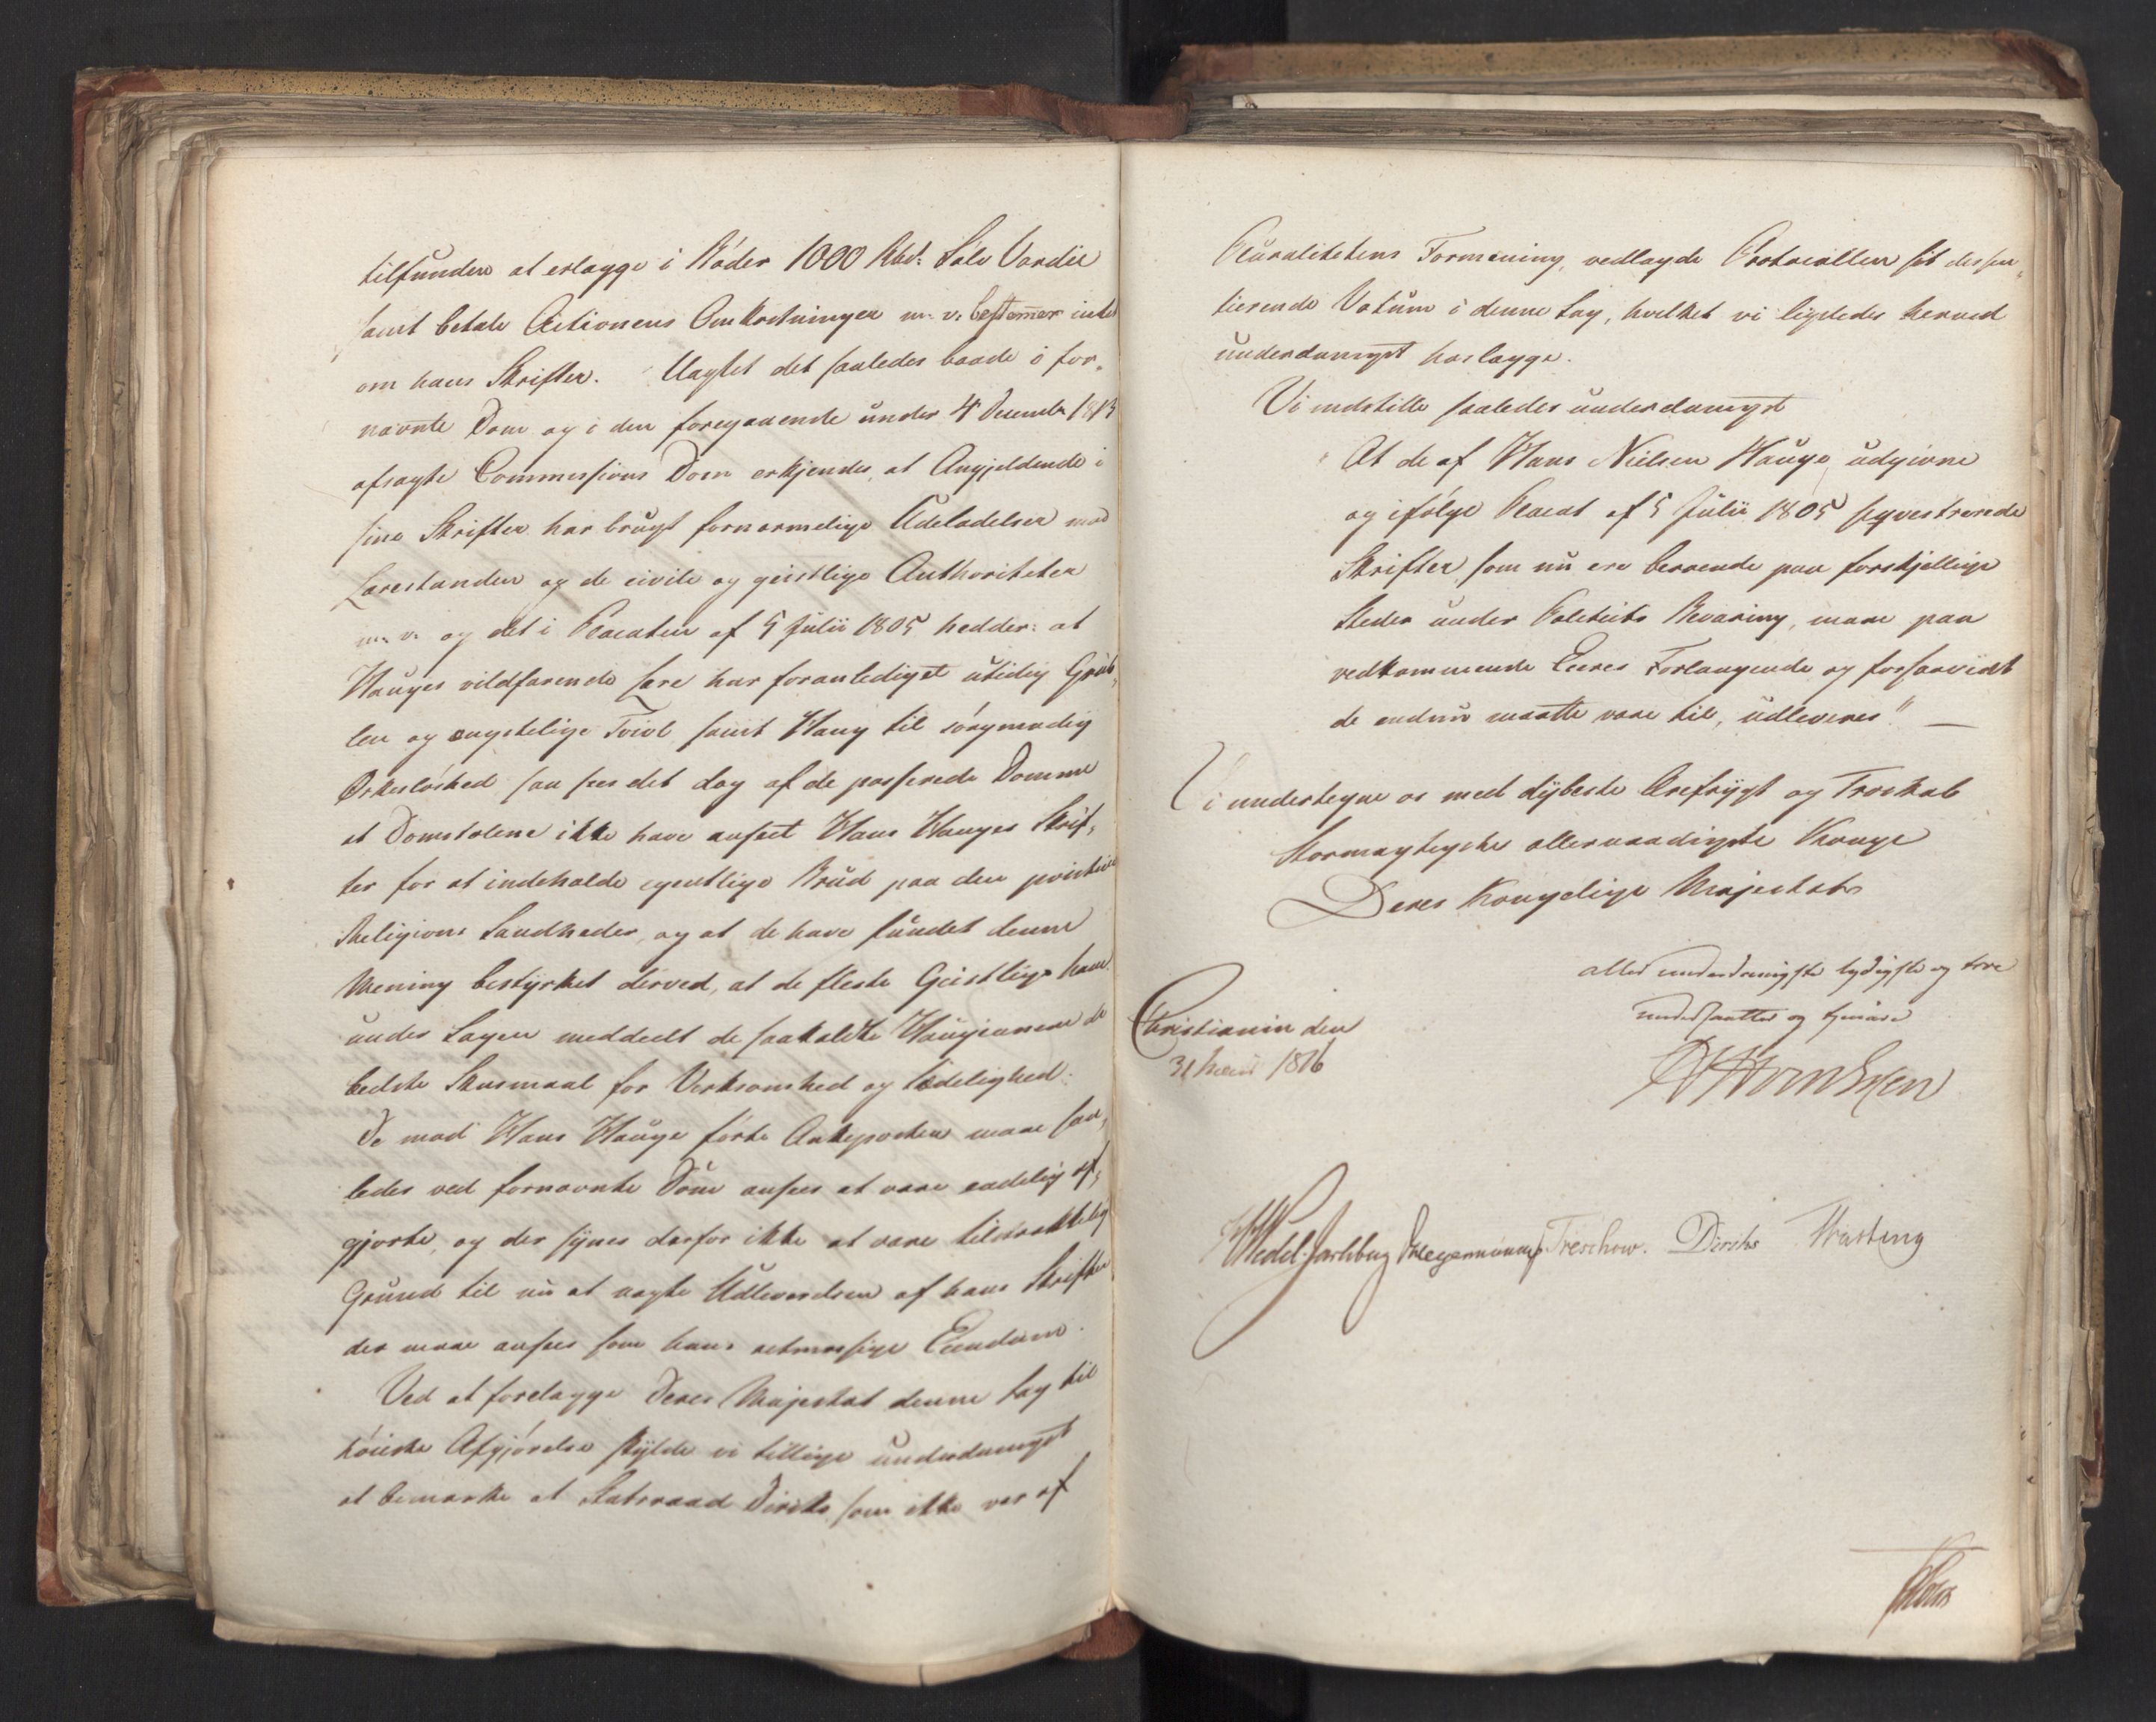 tilfunden at erlægge i Bøder 1000 Rbd: Sølv Værdie
samt betale Actionens Omkostninger m. v. bestemmer intet
om hans Skrifter. Uagtet det saaledes baade i for„
nævnte Dom og i den foregaaende under 4 December 1813
afsagte Commissions Dom erkjendes, at Angjeldende i
sine Skrifter har brugt fornærmelige Udeladelser mod
Lærestanden og de civile og geistlige Authoriteter
m. v. og det i Placaten af 5 Julii 1805 hedder: at
Hauges vildfarende Lære har foranlediget utidig Grub„
len og ængstelige Tvivl samt Hang til sørgmodig
Ørkesløshed saa sees det dog af de passerede Domme
at Domstolene ikke have anseet Hans Hauges Skrif„
ter for at indeholde egentlige Brud paa den positive
Religions Sandheder, og at de have fundet denne
Mening bestyrket derved, at de fleste Geistlige have
under Sagen meddeelt de saakaldte Haugianere de
bedste Skusmaal for Virksomhed og Sædelighed.
De mod Hans Hauge førte Ankeposter maae saa„
ledes ved fornævnte Dom ansees at være endelig af„
gjorte, og der synes derfor ikke at være tilstrækkelig
Grund til nu at nægte Udleverelsen af hans Skrifter
der maae ansees som hans retmæssige Eiendom.
Ved at forelægge Deres Majestæt denne Sag til
høieste Afgjørelse skulde vi tillige underdanigst
at bemærke at Statsraad Diriks som ikke var af
Pluralitetens Formening, vedlagde Protocollen sit dissen„
tierende Votum i denne Sag, hvilket vi ligeledes herved
underdanigst hoslægge.
Vi indstille saaledes underdanigst
At de af Hans Nielsen Hauge udgivne
og ifølge Placat af 5 Julii 1805 seqvestrerede
Skrifter, som nu ere beroende paa forskjellige
Steder under Politiets Bevaring, maae paa
vedkommende Eieres Forlangende og forsaavidt
de endnu maatte være til, udleveres" —
Vi undertegne os med dybeste Ærefrygt og Troskab
Stormægtigste allernaadigste Konge
Deres Kongelige Majestæts
allerunderdanigste lydigste og troe
undersaatter og tjenere
Christiania den
31 Mai 1816
Wedel-Jarlsberg Treschow. Diriks Hasting